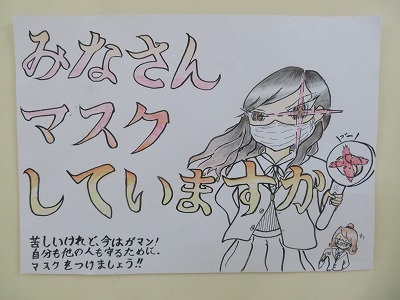 みなさん
マスク
していますか
苦しいけれど、今はガマン!
自分も他の人も守るために、
マスクをつけましょう!!